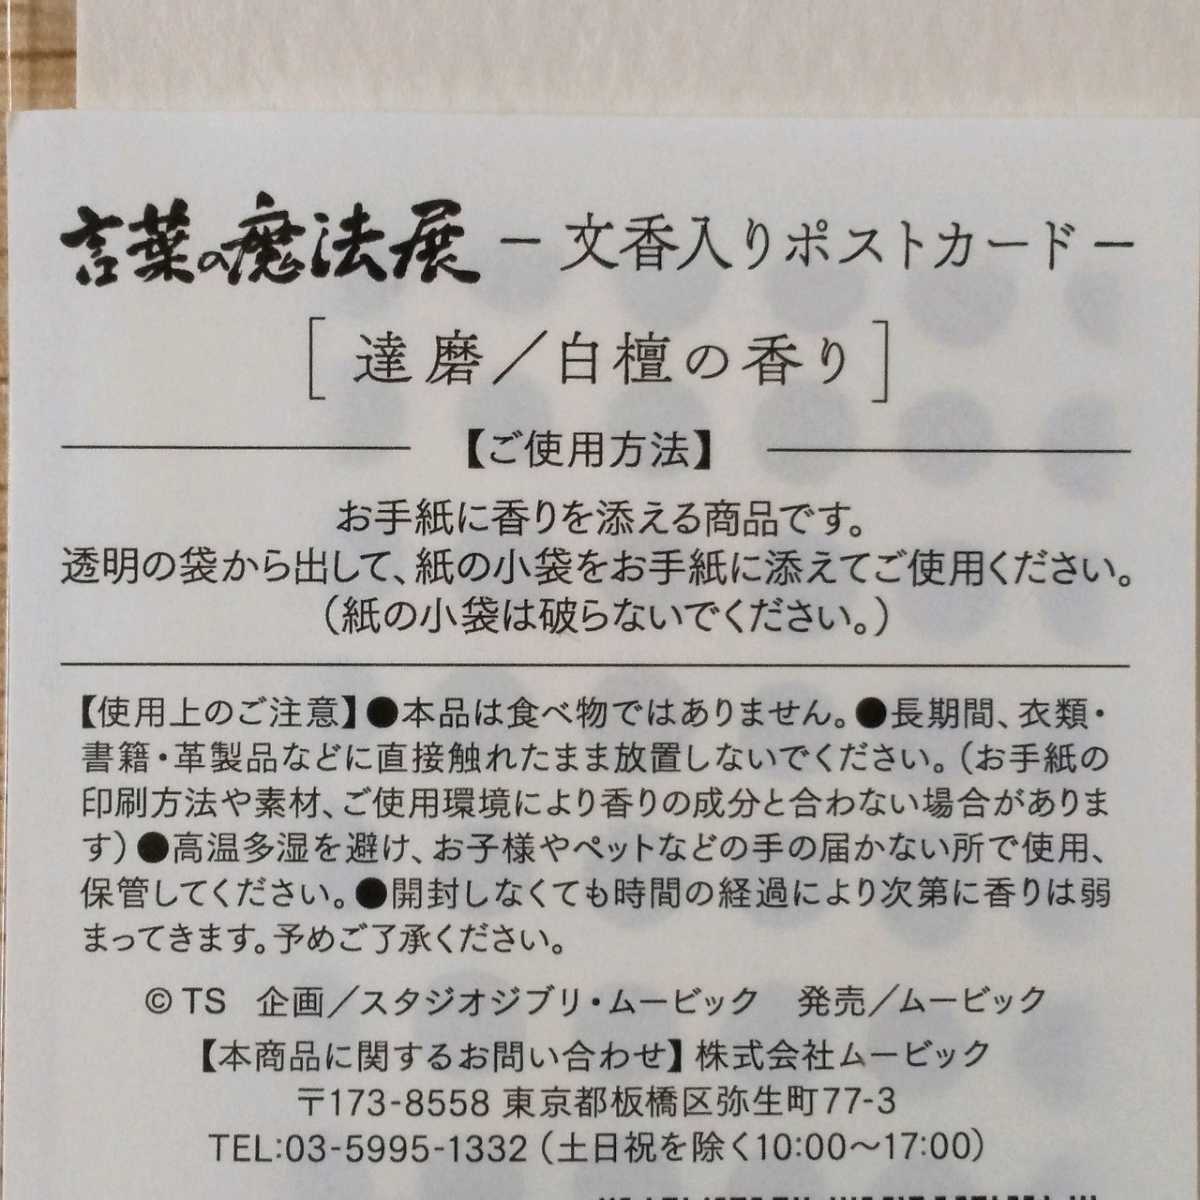 言葉の魔法展 − 文香入りポストカード −
[ 達磨／白檀の香り ]
【ご使用方法】
お手紙に香りを添える商品です。
透明の袋から出して、紙の小袋をお手紙に添えてご使用ください。
（紙の小袋は破らないでください。）
【使用上のご注意】●本品は食べ物ではありません。●長期間、衣類・
書籍・革製品などに直接触れたまま放置しないでください。（お手紙の
印刷方法や素材、ご使用環境により香りの成分と合わない場合がありま
す）●高温多湿を避け、お子様やペットなどの手の届かない所で使用、
保管してください。●開封しなくても時間の経過により次第に香りは弱
まってきます。予めご了承ください。
© TS 企画／スタジオジブリ・ムービック 発売／ムービック
【本商品に関するお問い合わせ】株式会社ムービック
〒173-8558 東京都板橋区弥生町77-3
TEL:03-5995-1332（土日祝を除く10:00〜17:00）